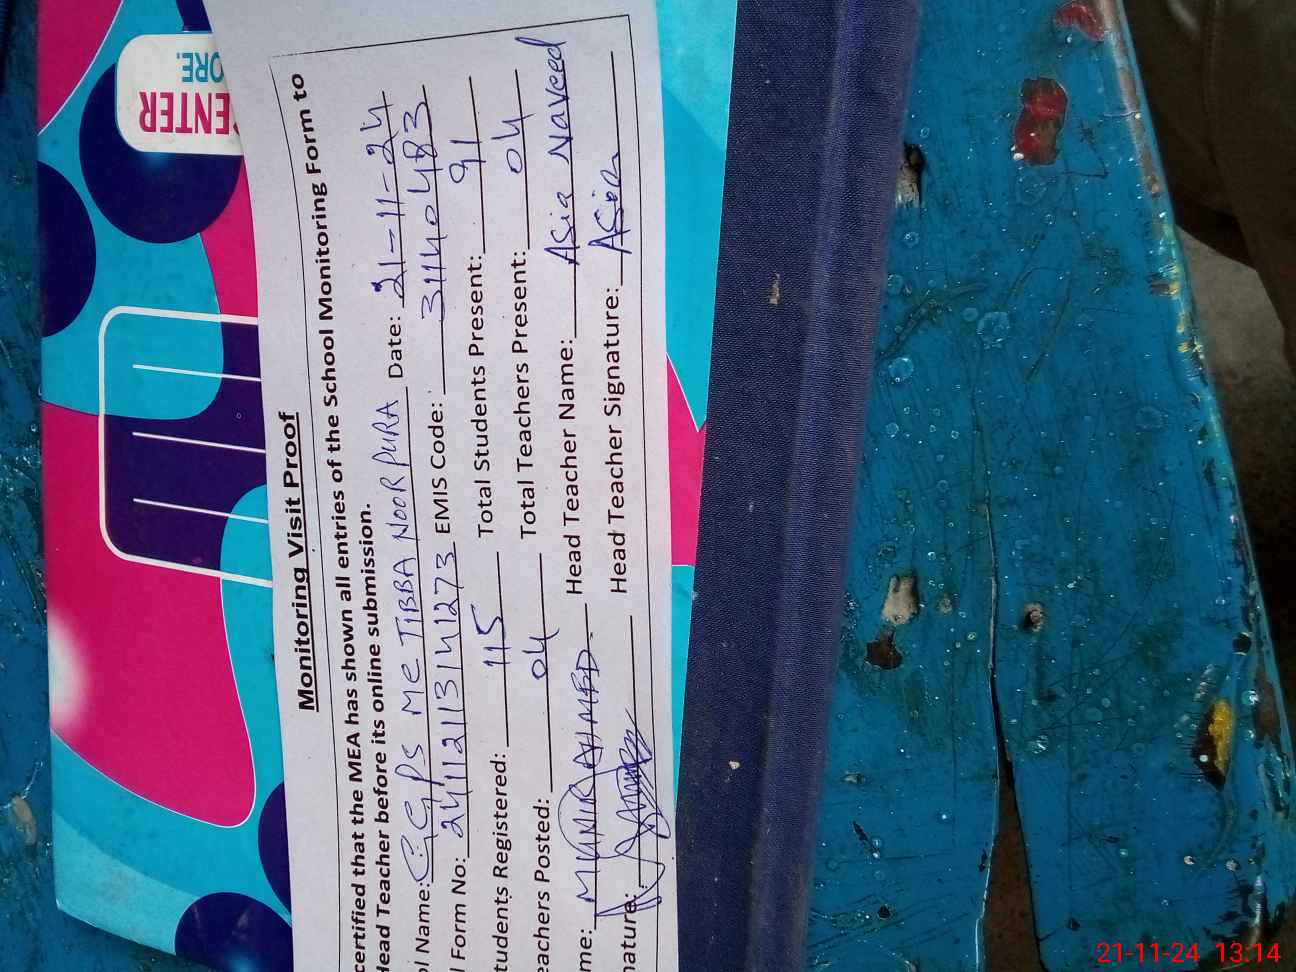 Monitoring Visit Proof
certified that the MEA has shown all entries of the School Monitoring Form to
Head Teacher before its online submission.
ol Name: GGPS MC TIBBA NOOR PURA Date: 21-11-24
l Form No: 241121131141273 EMIS Code: 31140483
tudents Registered: 115 Total Students Present: 91
eachers Posted: 04 Total Teachers Present: 04
me: MUNIR AHMED Head Teacher Name: Asia Naveed
nature: Head Teacher Signature: Asia
ENTER
ORE.
21-11-24 13:14